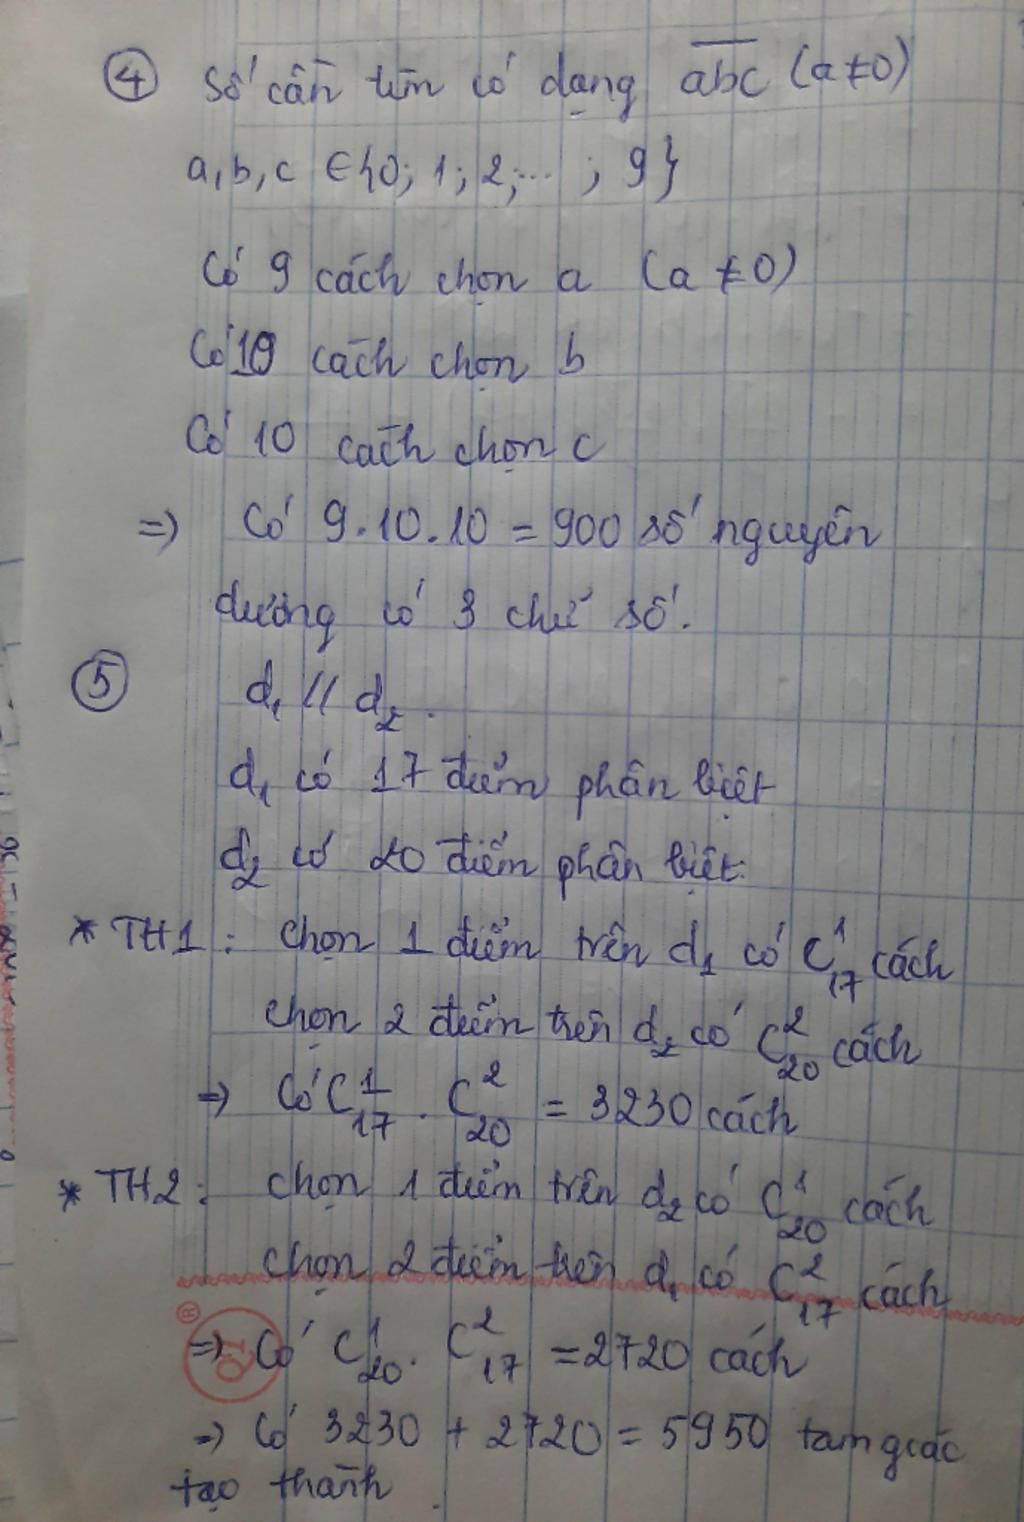 ④ Số cần tìm có dạng abc (a≠0)
a, b, c ∈ {0; 1; 2; ... ; 9}
Có 9 cách chọn a (a ≠ 0)
Có 10 cách chọn b
Có 10 cách chọn c
=> Có 9.10.10 = 900 số nguyên
dương có 3 chữ số.
⑤ d₁ // d₂.
d₁ có 17 điểm phân biệt
d₂ có 20 điểm phân biệt.
* TH1 : chọn 1 điểm trên d₁ có C¹₁₇ cách
chọn 2 điểm trên d₂ có C²₂₀ cách
=> Có C¹₁₇ . C²₂₀ = 3230 cách
* TH2 : chọn 1 điểm trên d₂ có C¹₂₀ cách
chọn 2 điểm trên d₁ có C²₁₇ cách
=> Có C¹₂₀ . C²₁₇ = 2720 cách
=> Có 3230 + 2720 = 5950 tam giác
tạo thành.